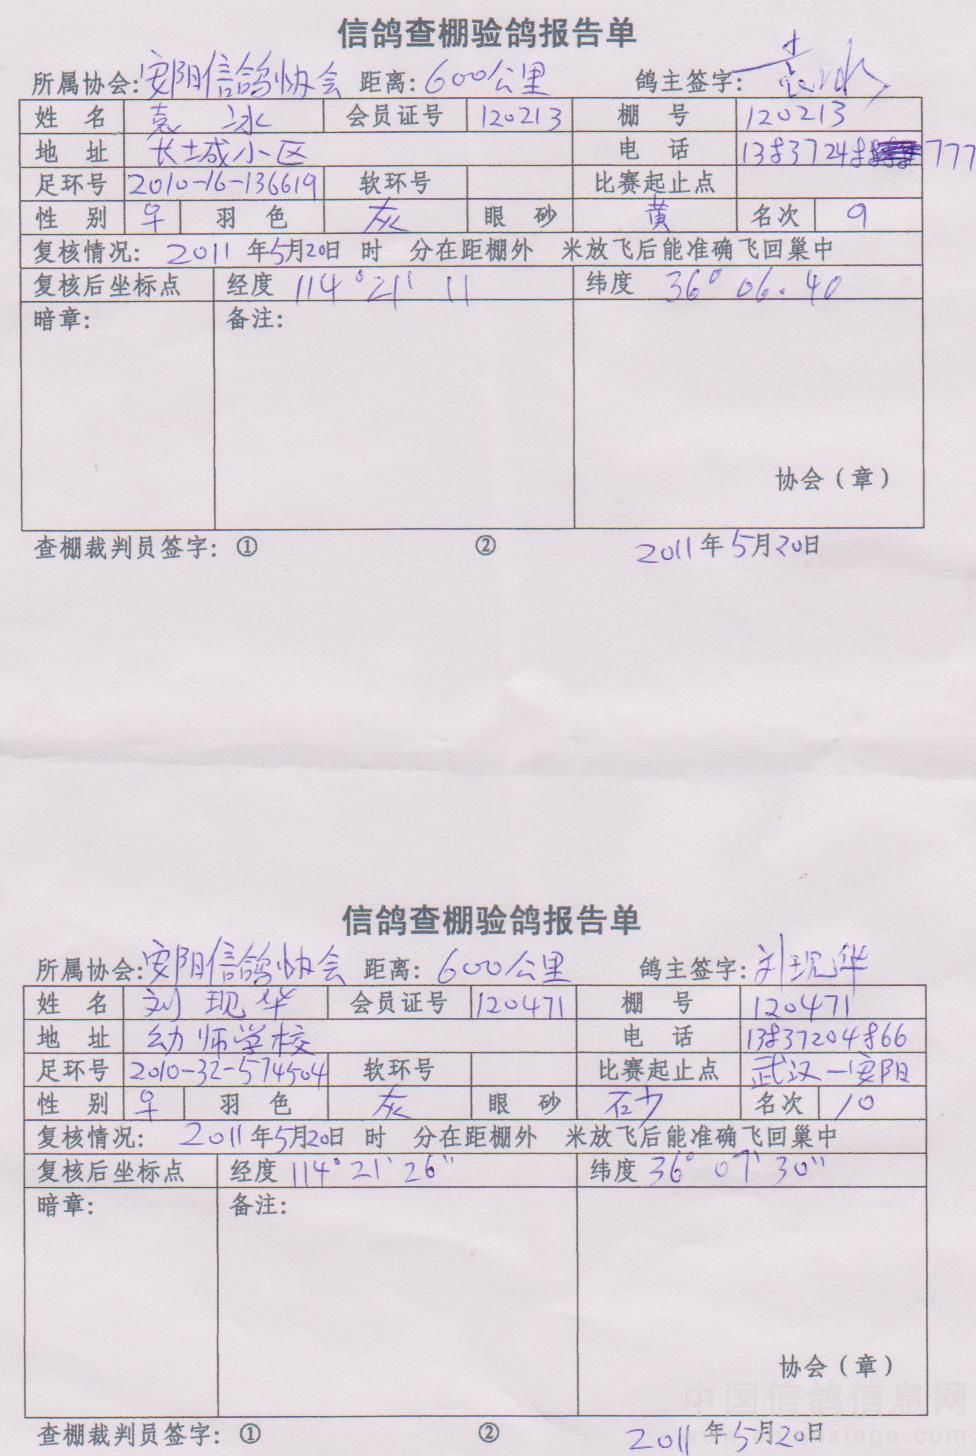 信鸽查棚验鸽报告单
所属协会:安阳信鸽协会 距离:600公里 鸽主签字:袁冰
姓 名 袁 冰 会员证号 120213 棚 号 120213
地 址 长土城小区 电 话 777
足环号 2010-16-136619 软环号 比赛起止点
性 别 ♀ 羽 色 灰 眼 砂 黄 名次 9
复核情况: 2011年5月20日 时 分在距棚外 米放飞后能准确飞回巢中
复核后坐标点 经度 114°21' 11 纬度 36° 06. 40
暗章: 备注:
协会(章)
查棚裁判员签字: ① ② 2011年5月20日
信鸽查棚验鸽报告单
所属协会:安阳信鸽协会 距离: 600公里 鸽主签字:刘现华
姓 名 刘 现 华 会员证号 120471 棚 号 120471
地 址 幼师学校 电 话 13837204866
足环号 2010-32-574504 软环号 比赛起止点 武汉—安阳
性 别 ♀ 羽 色 灰 眼 砂 砂 名次 10
复核情况: 2011年5月20日 时 分在距棚外 米放飞后能准确飞回巢中
复核后坐标点 经度 114°21'26" 纬度 36°07'30"
暗章: 备注:
协会(章)
中国信鸽信息网
查棚裁判员签字: ① ② 2011年5月20日